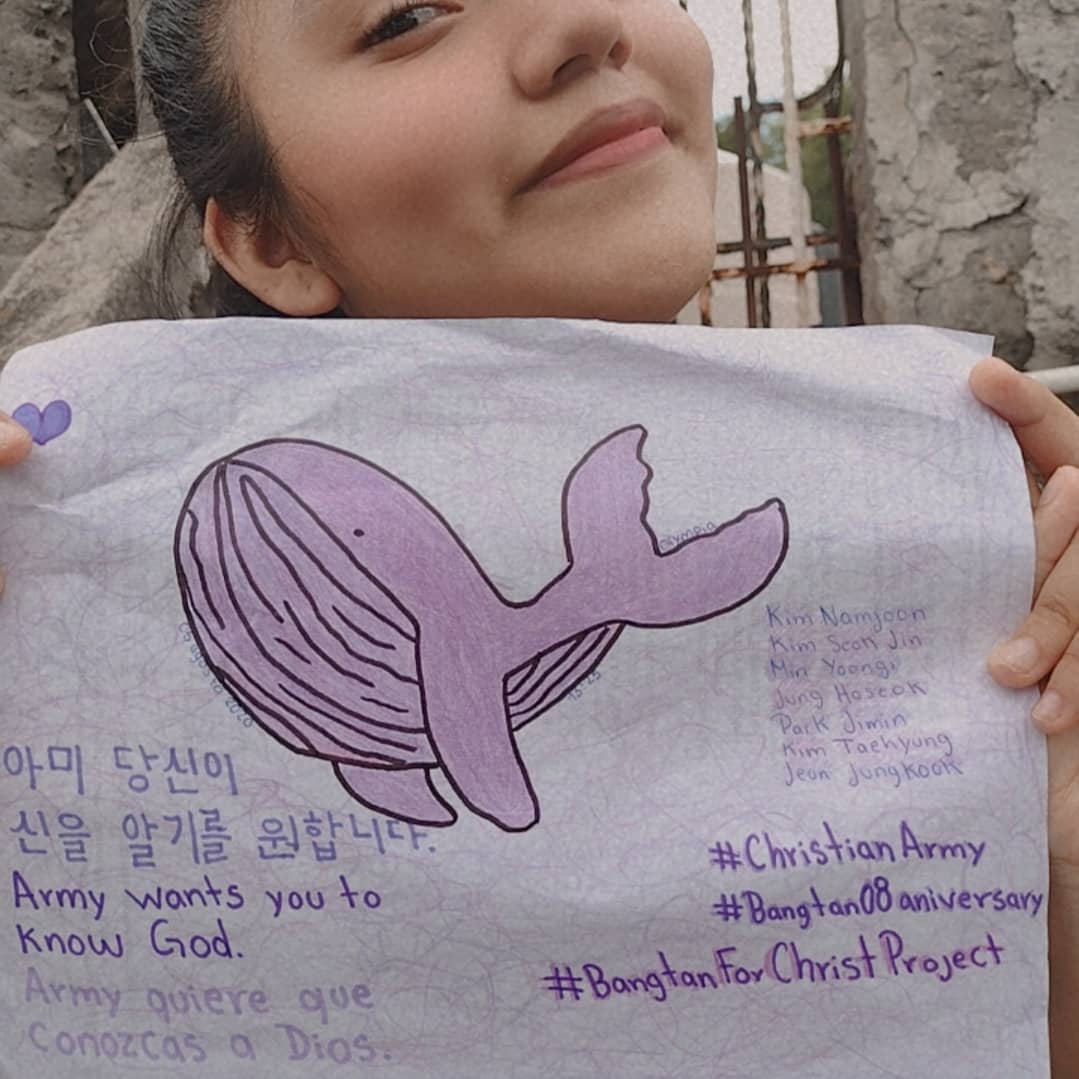 olympia
Kim Namjoon
Kim Seok Jin
Min Yoongi
Jung Hoseok
Park Jimin
Kim Taehyung
Jeon Jungkook
아미 당신이
신을 알기를 원합니다.
Army wants you to
know God.
Army quiere que
Conozcas a Dios.
#Christian Army
#Bangtan08 aniversary
#BangtanForChristProject